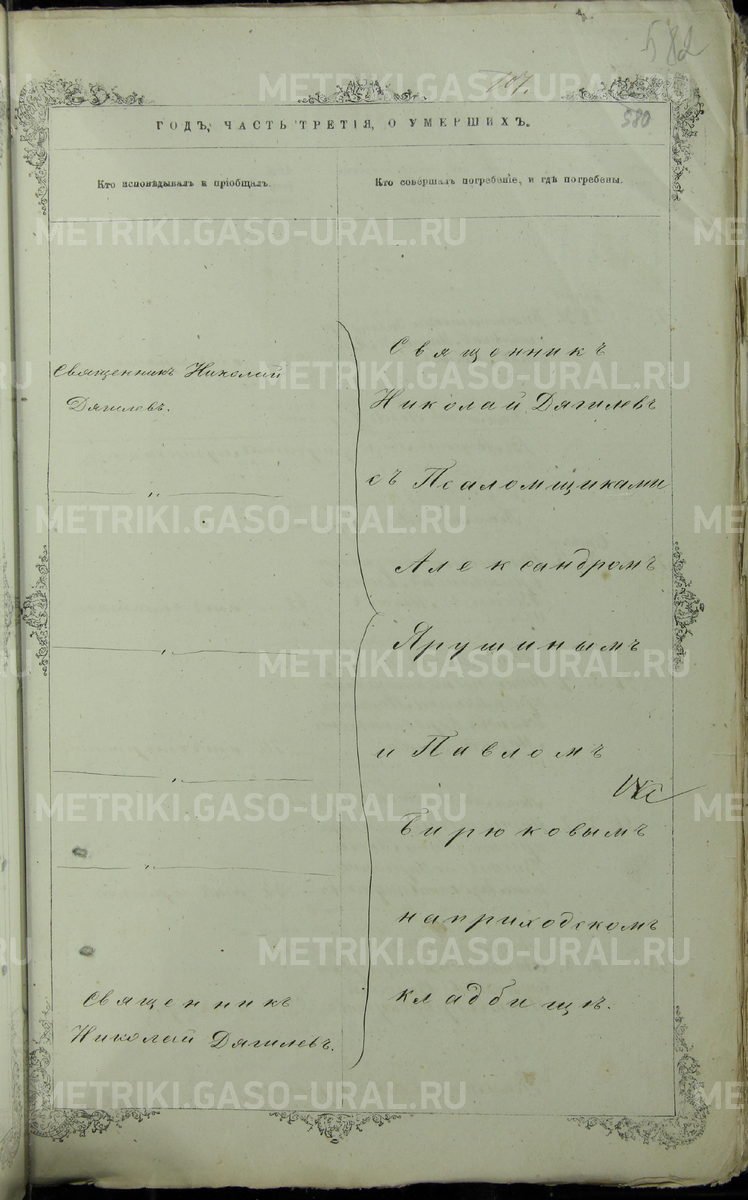 582
107.
580
ГОДЪ, ЧАСТЬ ТРЕТІЯ, О УМЕРШИХЪ.
Кто исповѣдывалъ и пріобщалъ.
Кто совершалъ погребеніе, и гдѣ погребены.
Священникъ Николай
Дягилевъ.
— „ —
— „ —
— „ —
— „ —
Священникъ
Николай Дягилевъ.
Священникъ
Николай Дягилевъ
съ Псаломщиками
Александромъ
Ярушинымъ
и Павломъ
Бирюковымъ
наприходскомъ
кладбищѣ.
METRIKI.GASO-URAL.RU